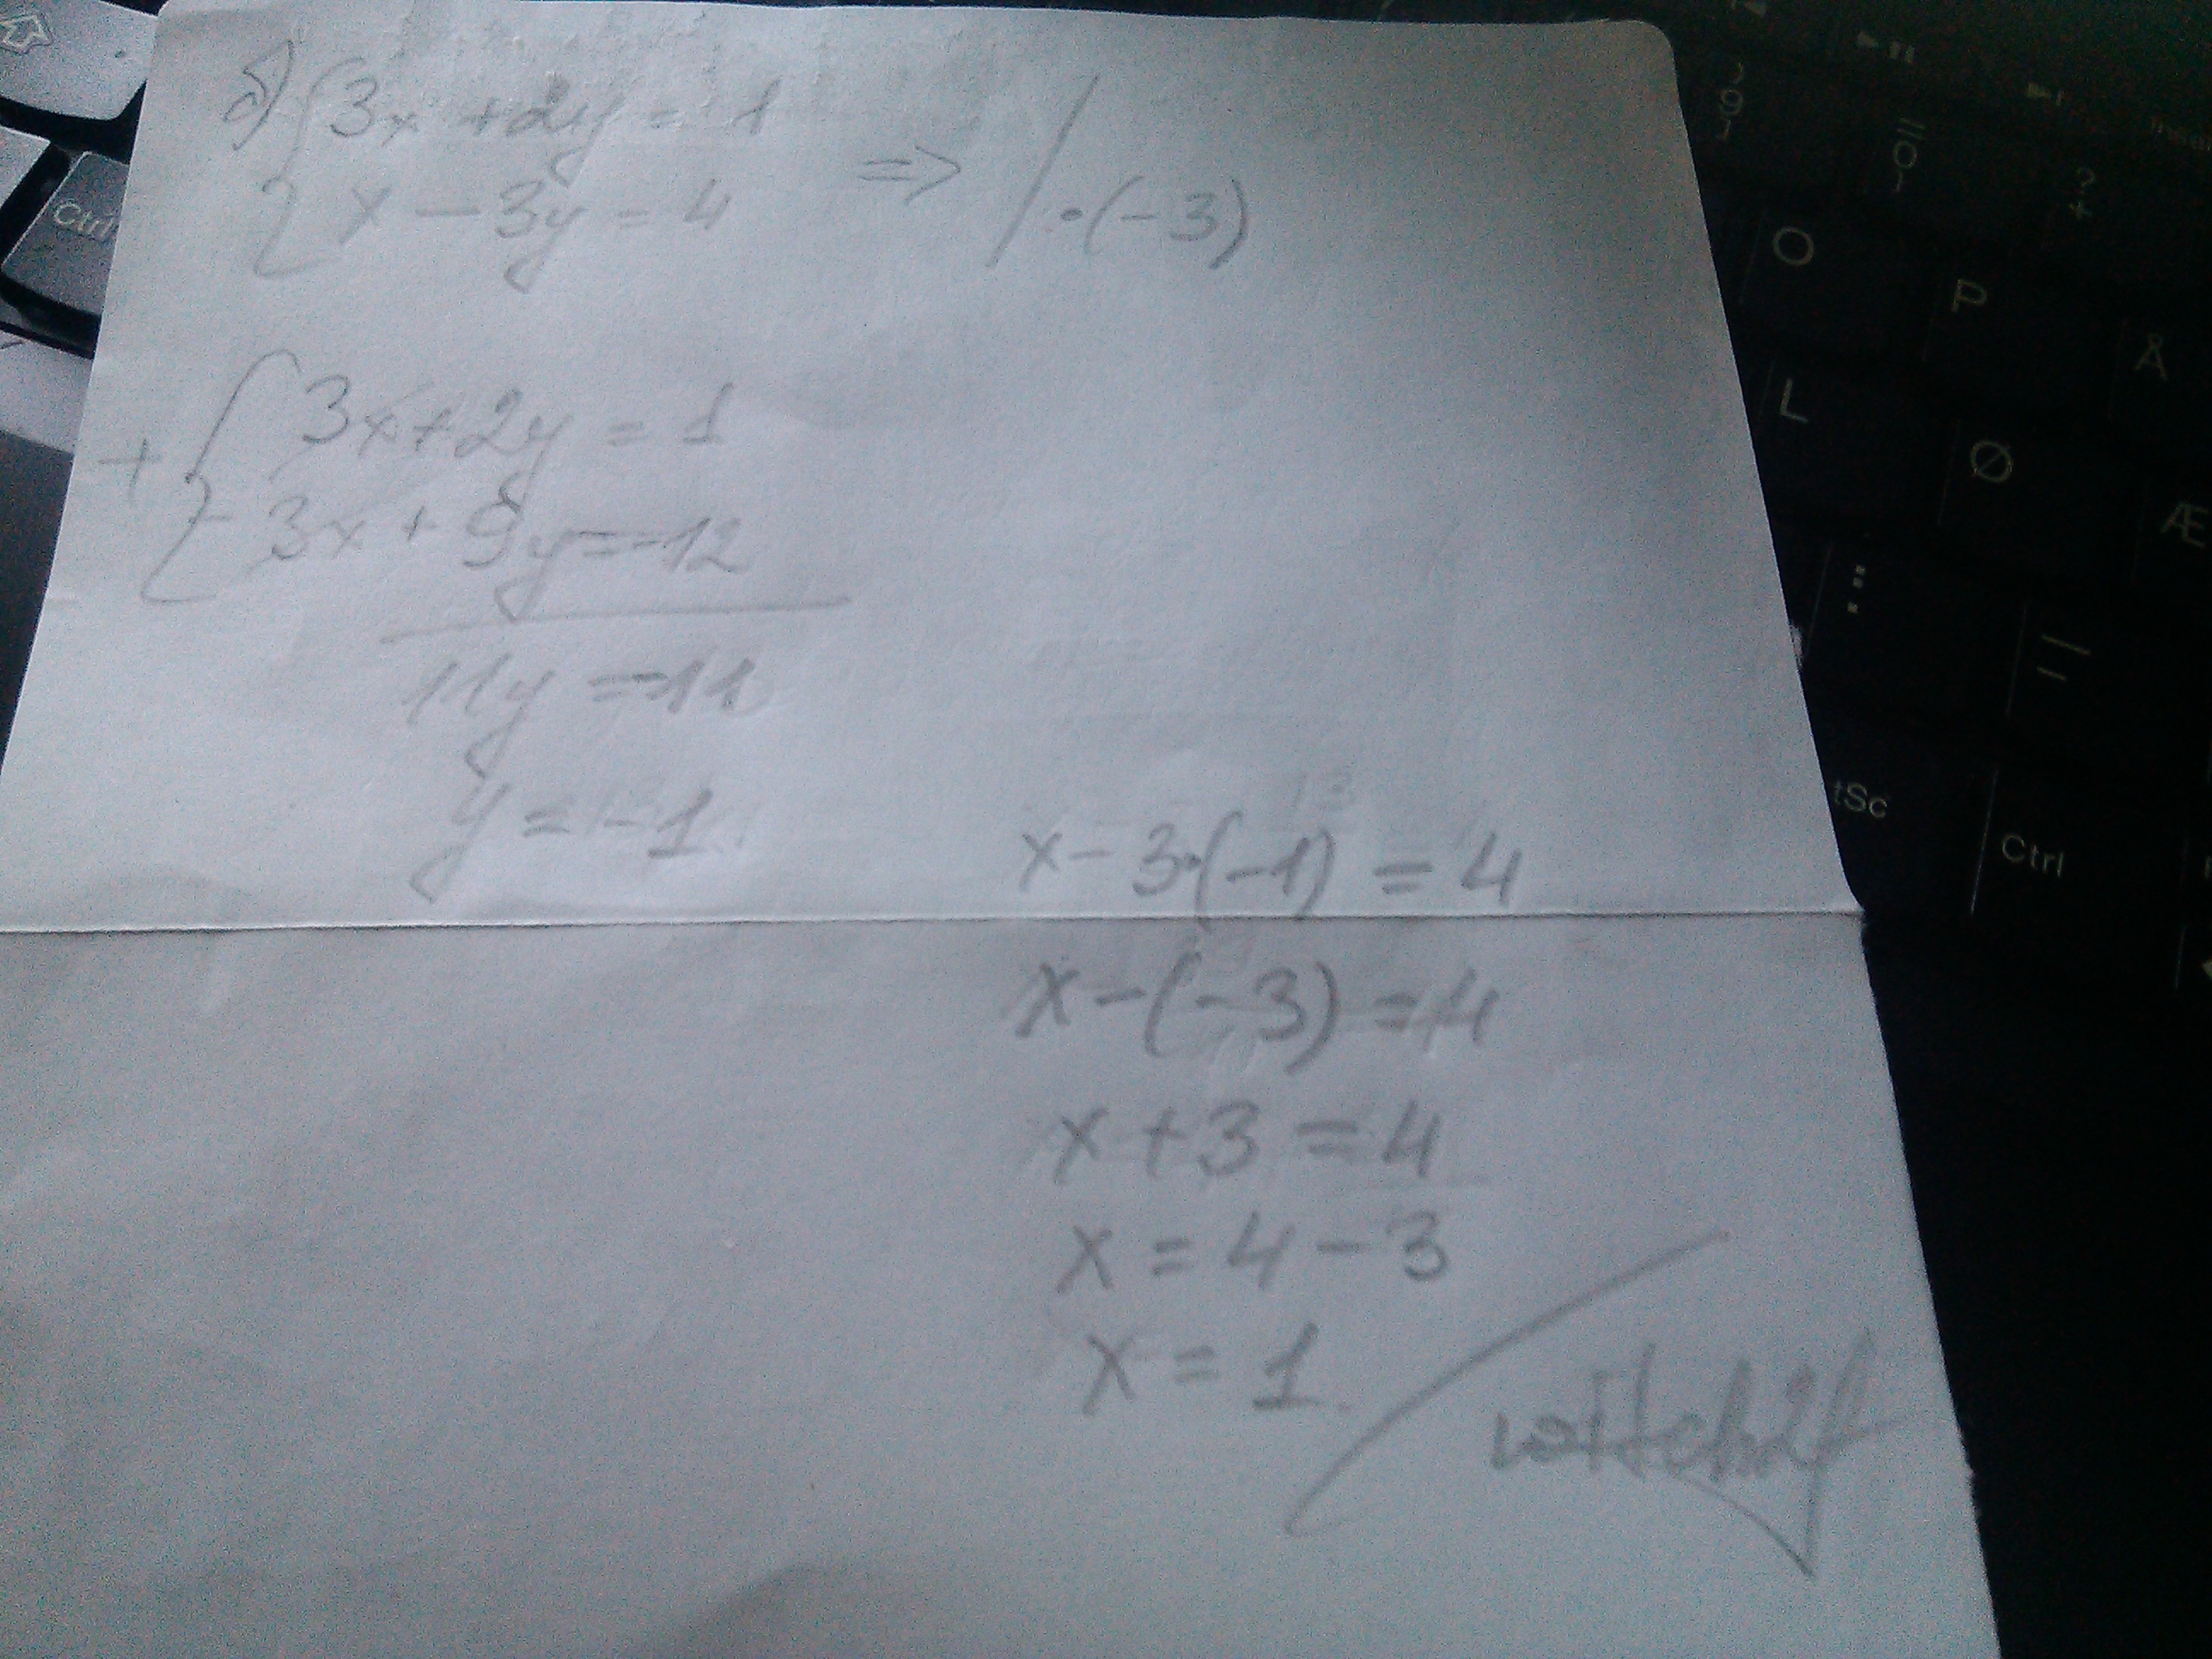 б) { 3x + 2y = 1
x - 3y = 4 => / · (-3)
+ { 3x + 2y = 1
- 3x + 9y = -12
11y = -11
y = -1
x - 3·(-1) = 4
x - (-3) = 4
x + 3 = 4
x = 4 - 3
x = 1
Ctrl
O
P
Å
L
Ø
Æ
tSc
Ctrl